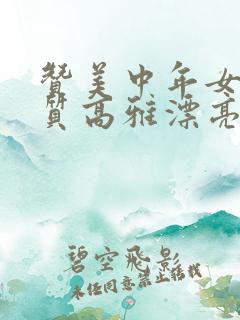 赞美中年女
质高雅漂亮
碧空飞影
未经同意禁止转载